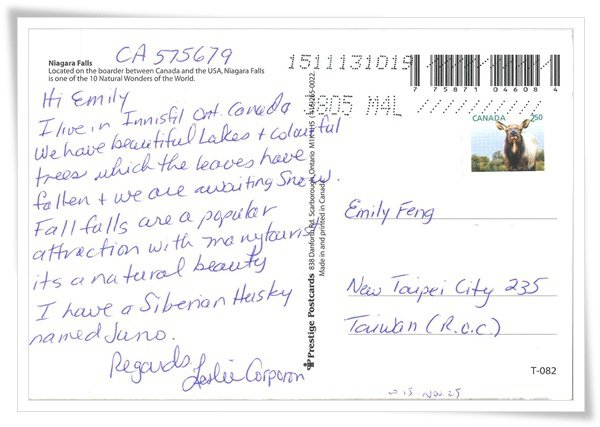 CA 575679
Niagara Falls
Located on the boarder between Canada and the USA, Niagara Falls
is one of the 10 Natural Wonders of the World.
Hi Emily
I live in Innisfil Ont. Canada
We have beautiful Lakes + colourful
trees which the leaves have
fallen + we are awaiting Snow.
Fall falls are a popular
attraction with many tourist
its a natural beauty
I have a Siberian Husky
named Juno.
Regards
Leslie Corporon
Prestige Postcards 838 Danforth Rd. Scarborough, Ontario M1K 1H5
Made in and printed in Canada
1511131019
7 75871 04608 4
M4L
CANADA 250
Emily Feng
New Taipei City 235
Taiwan (R.O.C)
T-082
2015 Nov. 25